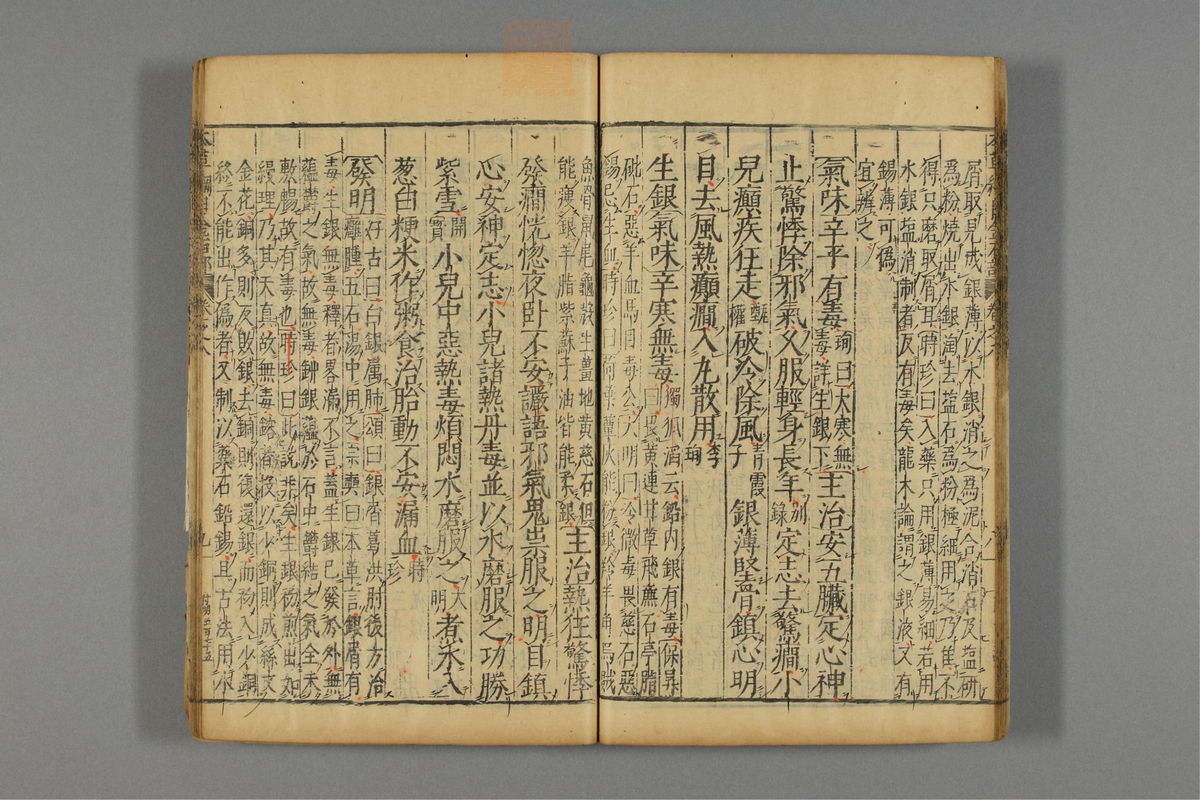 屑取見成銀薄以水銀消之為泥合消石及塩研
為粉燒出水銀淘去塩石為粉極細用之乃佳不
得只磨取屑耳時珍曰入藥只用銀薄易細若用
水銀塩消制者反有毒矣龍木論謂之銀液又有
錫薄可偽
宜辨之
氣味辛平有毒珣曰大寒無
毒詳生銀下主治安五臟定心神
止驚悸除邪氣久服輕身長年別
錄定志去驚癇小
兒癲疾狂走甄
權破冷除風青霞
子銀薄堅骨鎮心明
目去風熱癲癇入丸散用李
珣
生銀氣味辛寒無毒獨孤滔云鉛内銀有毒保昇
曰畏黄連甘草飛廉石亭脂
砒石惡羊血馬目毒公大明曰冷微毒畏慈石惡
錫忌生血時珍曰荷葉蕈灰能粉銀羚羊角烏賊
魚骨鼠尾龜殻生薑地黄慈石俱
能瘦銀羊脂紫蘇子油皆能柔銀主治熱狂驚悸
發癇恍惚夜卧不安讝語邪氣鬼祟服之明目鎮
心安神定志小兒諸熱丹毒並以水磨服之功勝
紫雪開
寶小兒中惡熱毒煩悶水磨服之大
明煮水入
葱白粳米作粥食治胎動不安漏血時
珍
發明好古曰白銀属肺頌曰銀屑葛洪肘後方治
癰腫五石湯中用之宗奭曰本草言銀屑有
毒生銀無毒釋者畧漏不言蓋生銀已發於外無
蘊鬱之氣故無毒鉚銀蘊於石中鬱結之氣全未
敷暢故有毒也時珍曰此說非矣生銀初煎出如
縵理乃其天真故無毒鎔者投以少銅則成絲文
金花銅多則反敗銀去銅則復還銀而初入少銅
終不能出作偽者又制以藥石鉛錫且古法用水